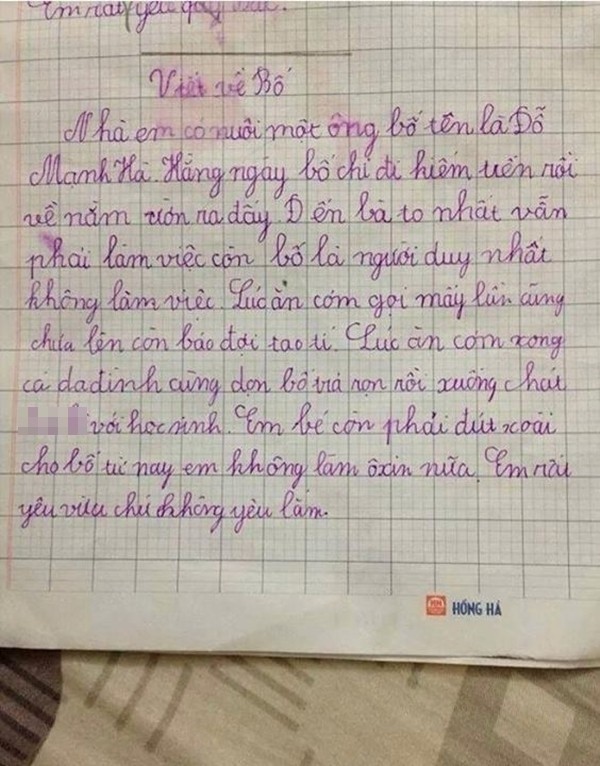 Em rất yêu
Viết về Bố
Nhà em có nuôi một ông bố tên là Đỗ
Mạnh Hà. Hằng ngày bố chỉ đi hiếm tiền rồi
về nằm ườn ra đấy Đến bà to nhất vẫn
phải làm việc còn bố là người duy nhất
không làm việc. Lúc ăn cơm gọi mấy lần cũng
chưa lên còn bảo đợi tao tí. Lúc ăn cơm xong
cả da đình cùng dọn bố trả rọn rồi xuống chát
với học sinh. Em bé còn phải đút xoài
cho bố từ nay em không làm ôxin nữa. Em rất
yêu vừa chứ không yêu lắm.
HH HỒNG HÀ